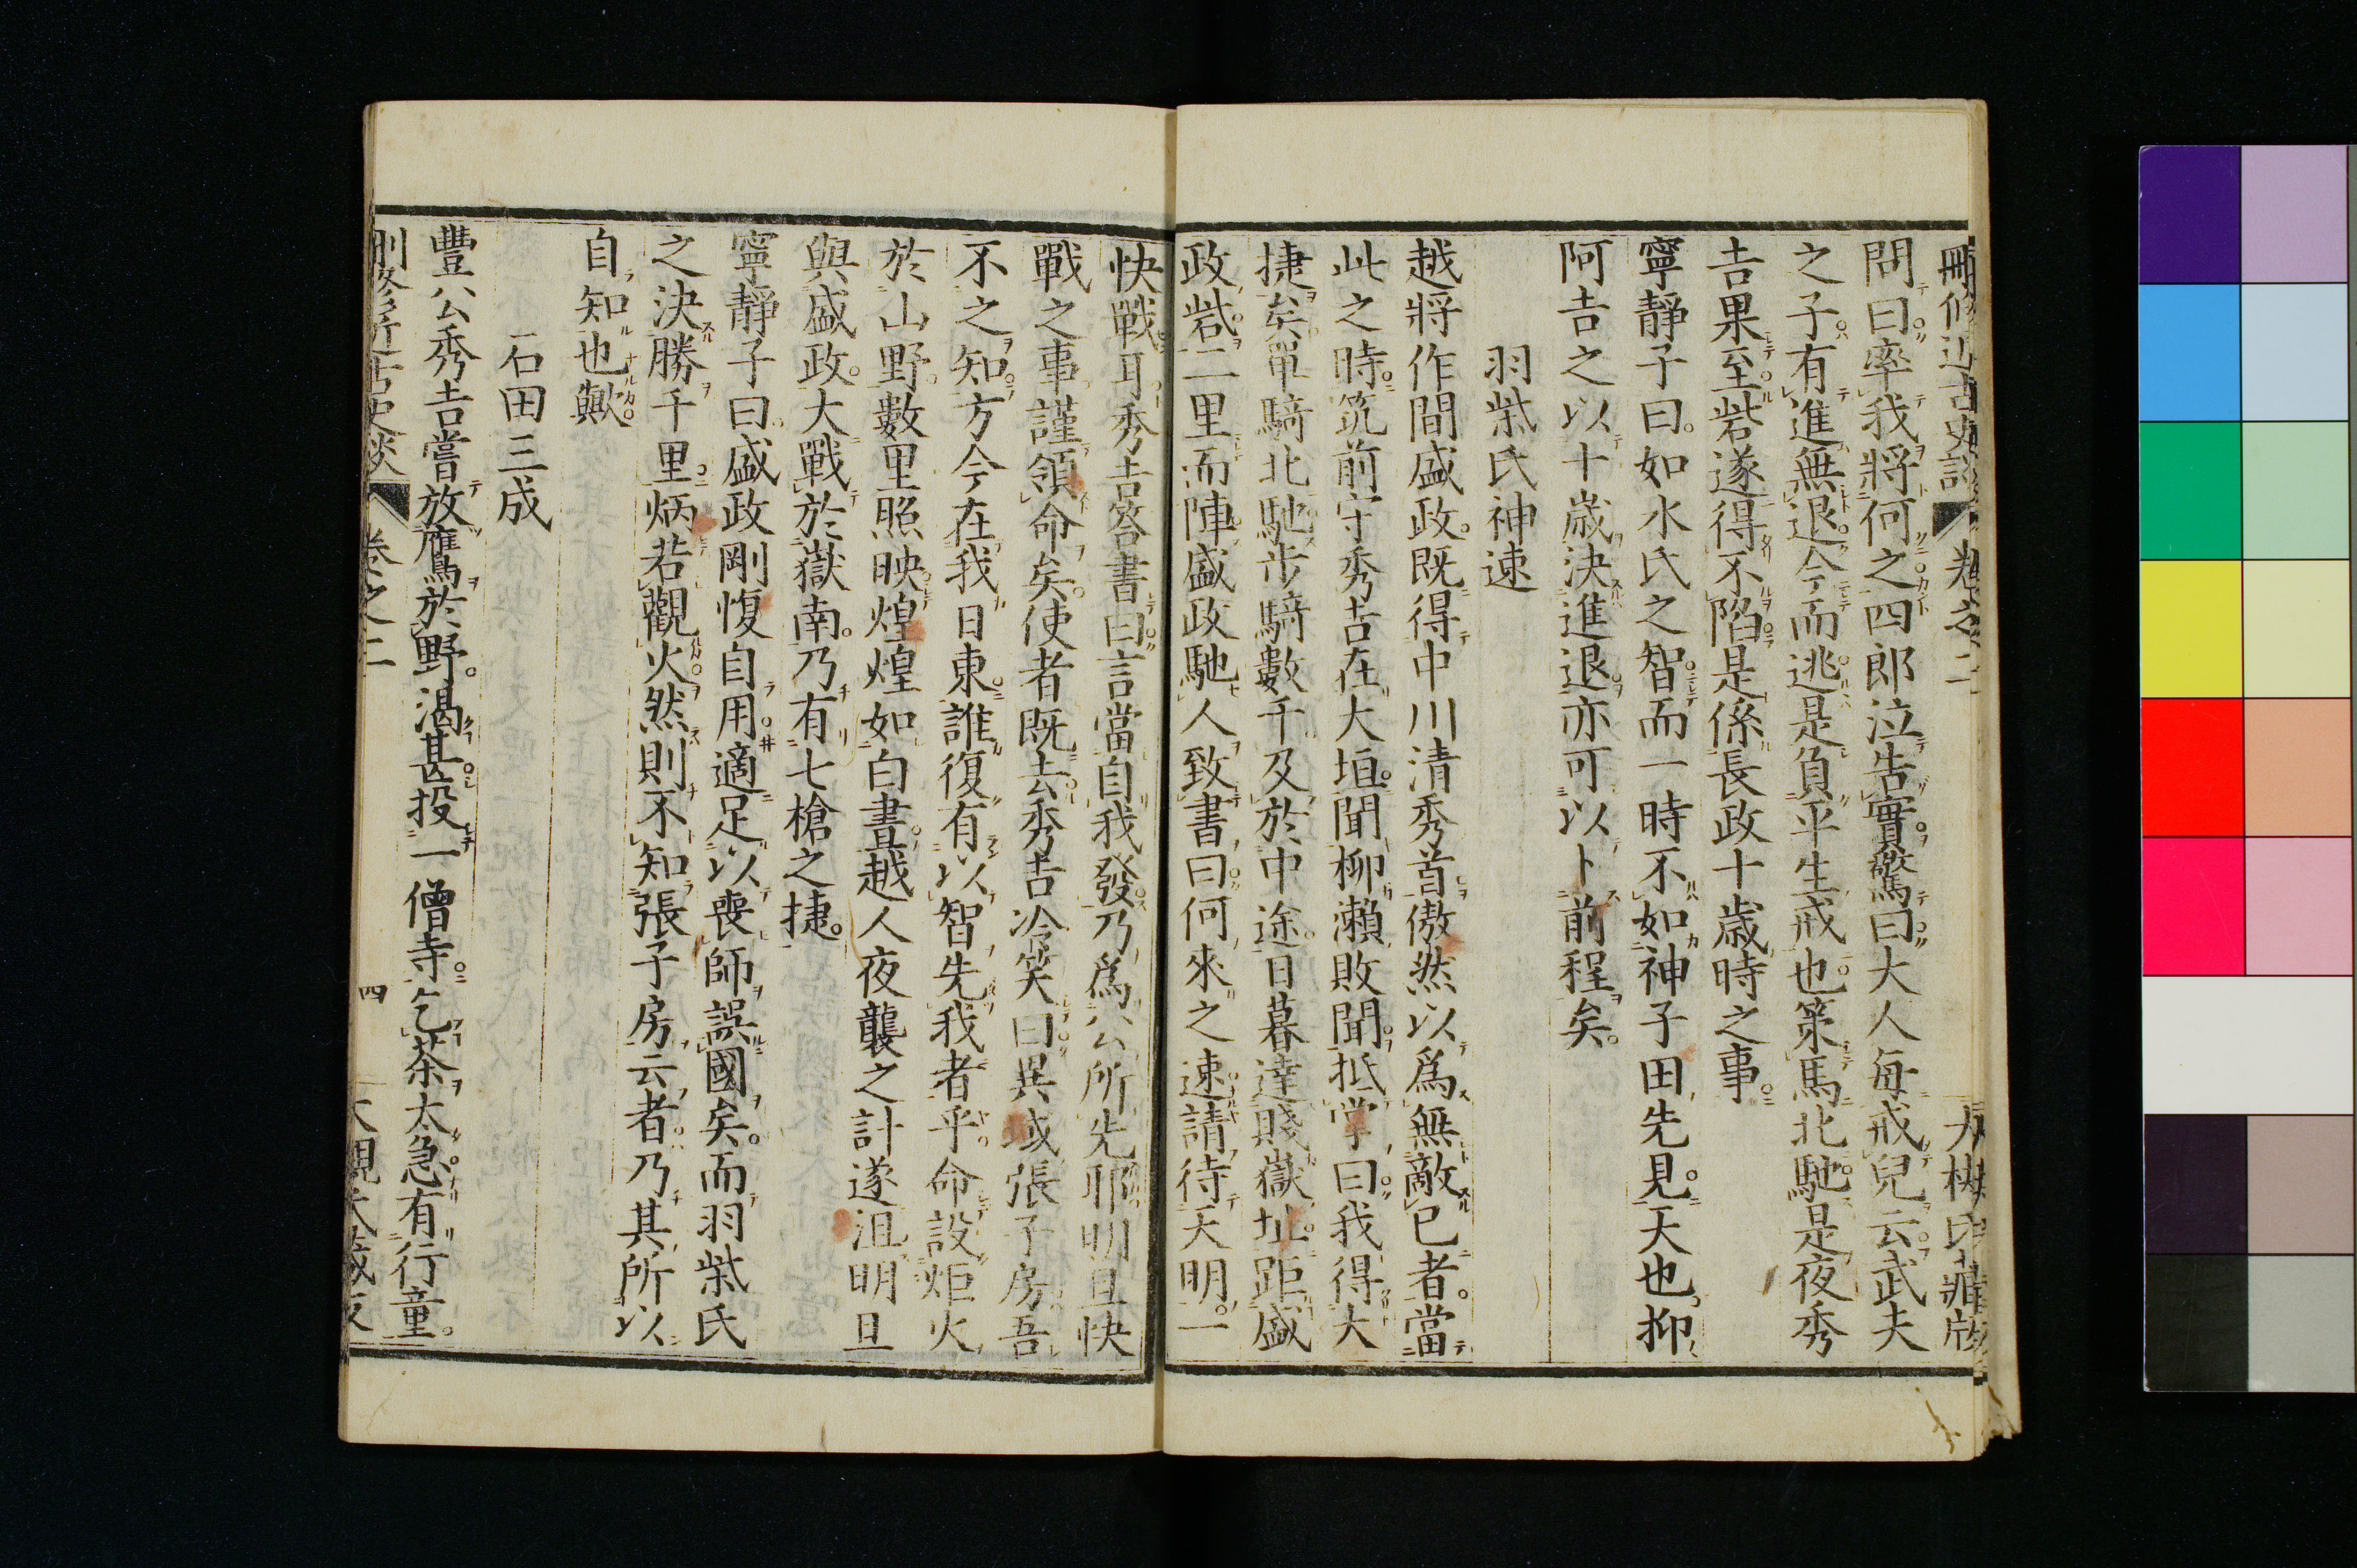 刪修近古史談 卷之二 大槻氏藏版
問曰率我將何之四郎泣告實驚曰大人每戒兒云武夫
之子有進無退今而逃是負平生戒也策馬北馳是夜秀
吉果至砦遂得不陷是係長政十歲時之事
寧靜子曰如水氏之智而一時不如神子田先見天也抑
阿吉之以十歲決進退亦可以卜前程矣
羽柴氏神速
越將作間盛政既得中川清秀首傲然以爲無敵已者當
此之時筑前守秀吉在大垣聞柳瀨敗聞抵掌曰我得大
捷矣單騎北馳步騎數千及於中途日暮達賤嶽址距盛
政砦二里而陣盛政馳人致書曰何來之速請待天明一
快戰耳秀吉答書曰言當自我發乃爲公所先耶明旦快
戰之事謹領命矣使者既去秀吉冷笑曰異域張子房吾
不之知方今在我日東誰復有以智先我者乎命設炬火
於山野數里照映煌煌如白晝越人夜襲之計遂沮明旦
與盛政大戰於嶽南乃有七槍之捷
寧靜子曰盛政剛愎自用適足以喪師誤國矣而羽柴氏
之決勝千里炳若觀火然則不知張子房云者乃其所以
自知也歟
石田三成
豐公秀吉嘗放鷹於野渴甚投一僧寺乞茶太急有行童
刪修近古史談 卷之二 四